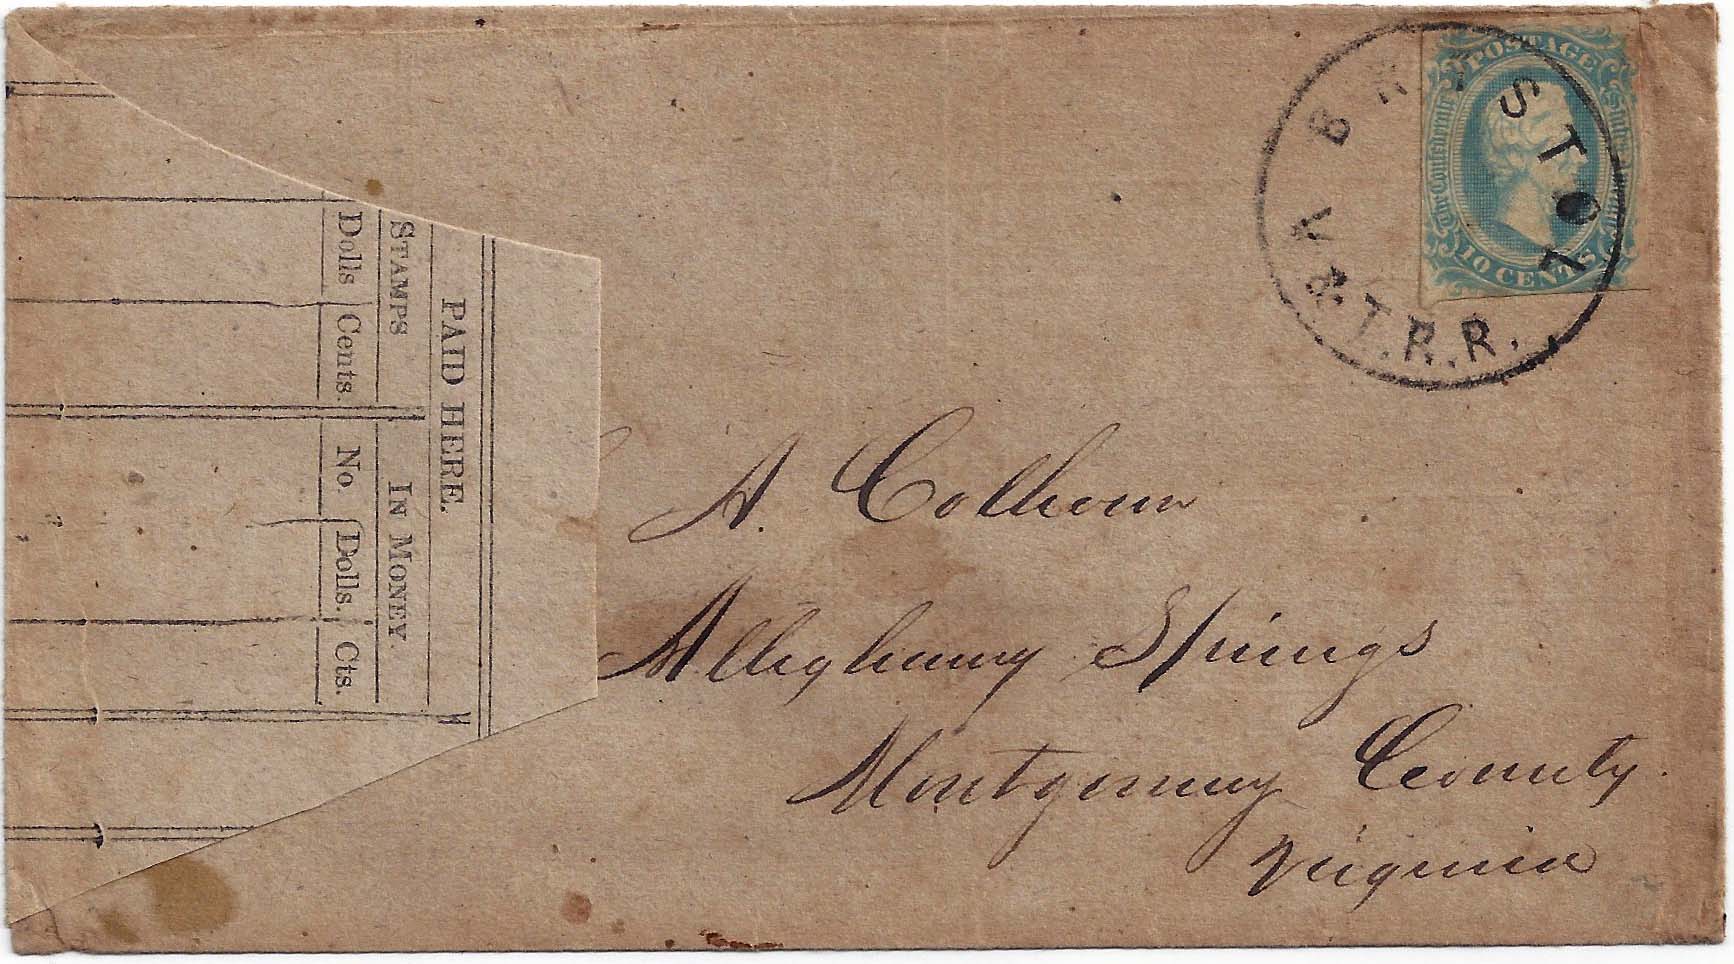 POSTAGE
The Confederate States of America
10 CENTS
BRISTOL
V & T. R. R.
PAID HERE.
STAMPS
IN MONEY.
Dolls Cents No. Dolls. Cts.
A. Colhoun
Alleghany Springs
Montgomery County
Virginia